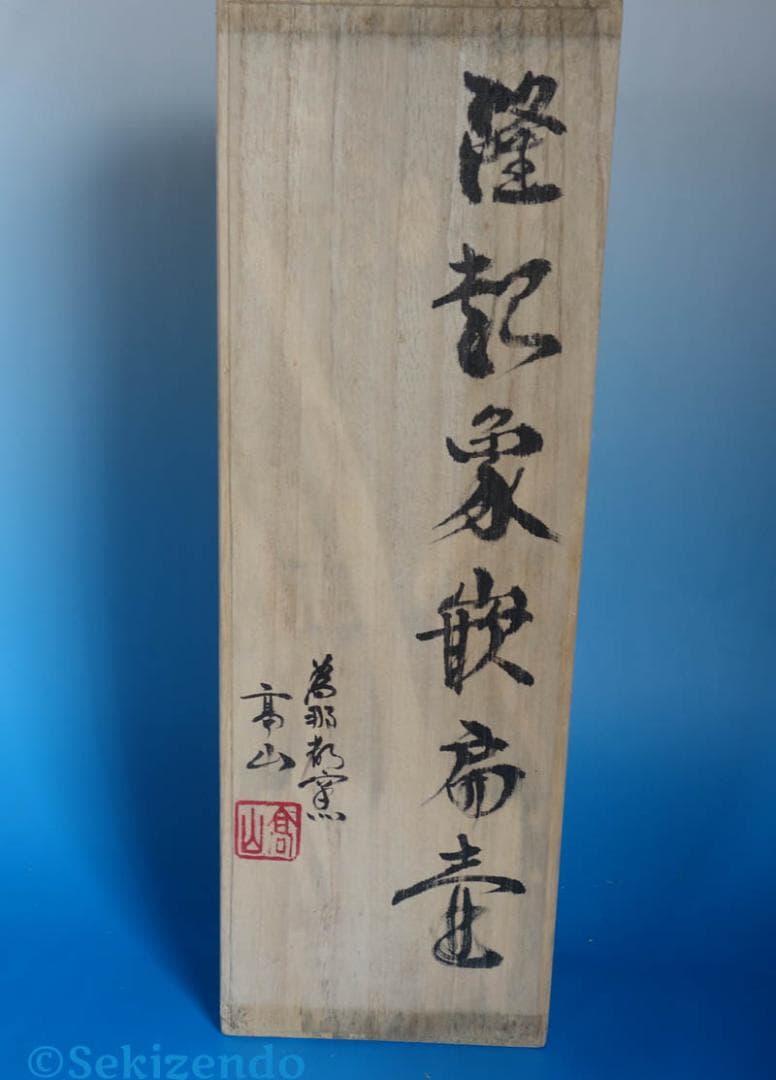 隆起象嵌扁壷
為那都窯
高山
高山
©Sekizendo